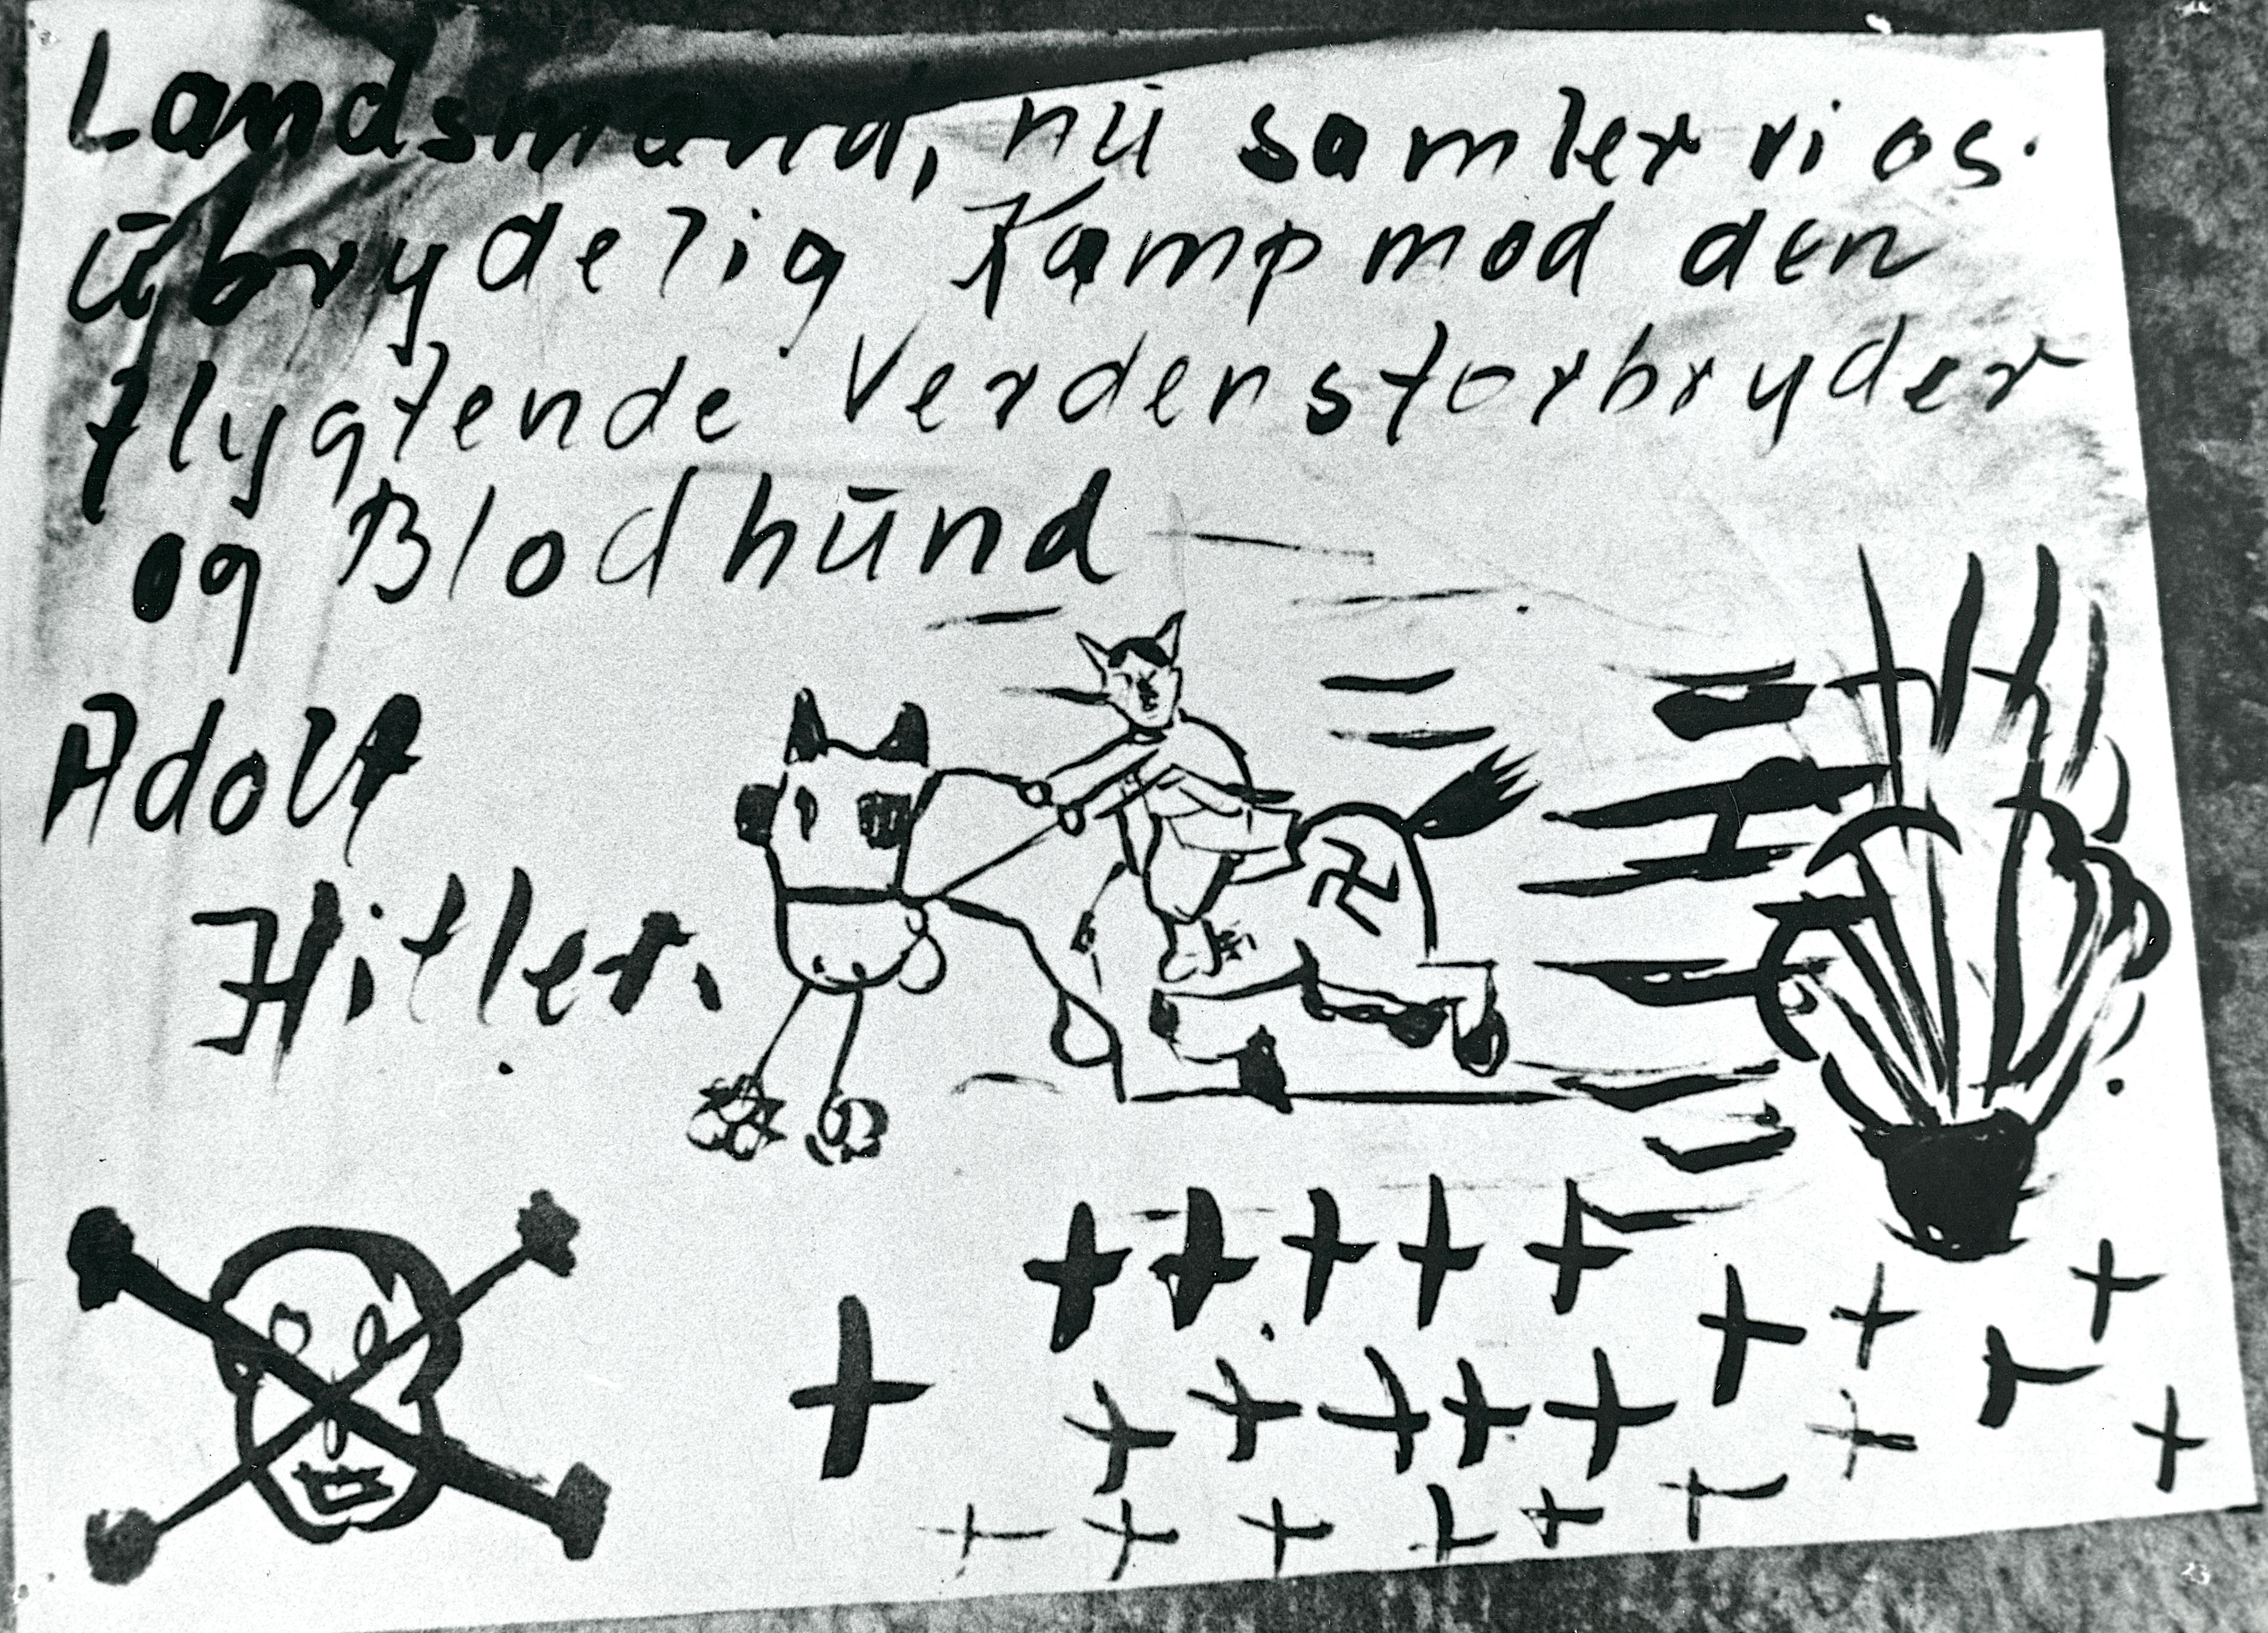 Landsmænd, nū samler vi os.
Ūbrydelig Kamp mod den
flygtende Verdensforbryder
og Blodhūnd
Adolf
Hitler.
23